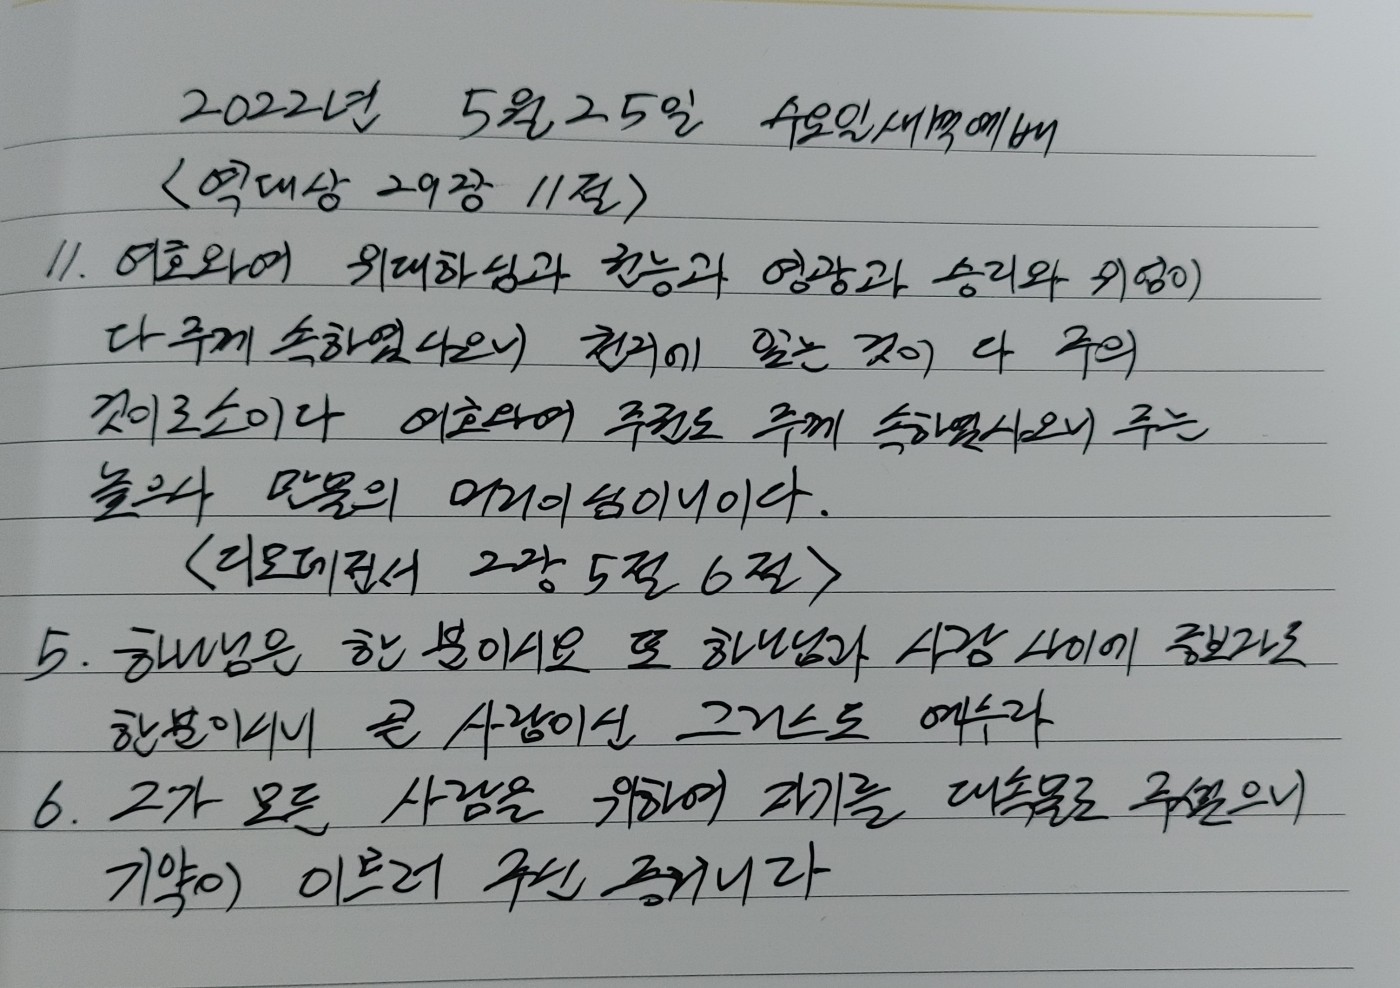 2022년 5월 25일 수요일새벽예배
<역대상 29장 11절>
11. 여호와여 위대하심과 권능과 영광과 승리와 위엄이
다 주께 속하였사오니 천지에 있는 것이 다 주의
것이로소이다 여호와여 주권도 주께 속하였사오니 주는
높으사 만물의 머리이심이니이다.
<디모데전서 2장 5절 6절>
5. 하나님은 한 분이시요 또 하나님과 사람 사이에 중보자도
한분이시니 곧 사람이신 그리스도 예수라
6. 그가 모든 사람을 위하여 자기를 대속물로 주셨으니
기약이 이르러 주신 증거니라